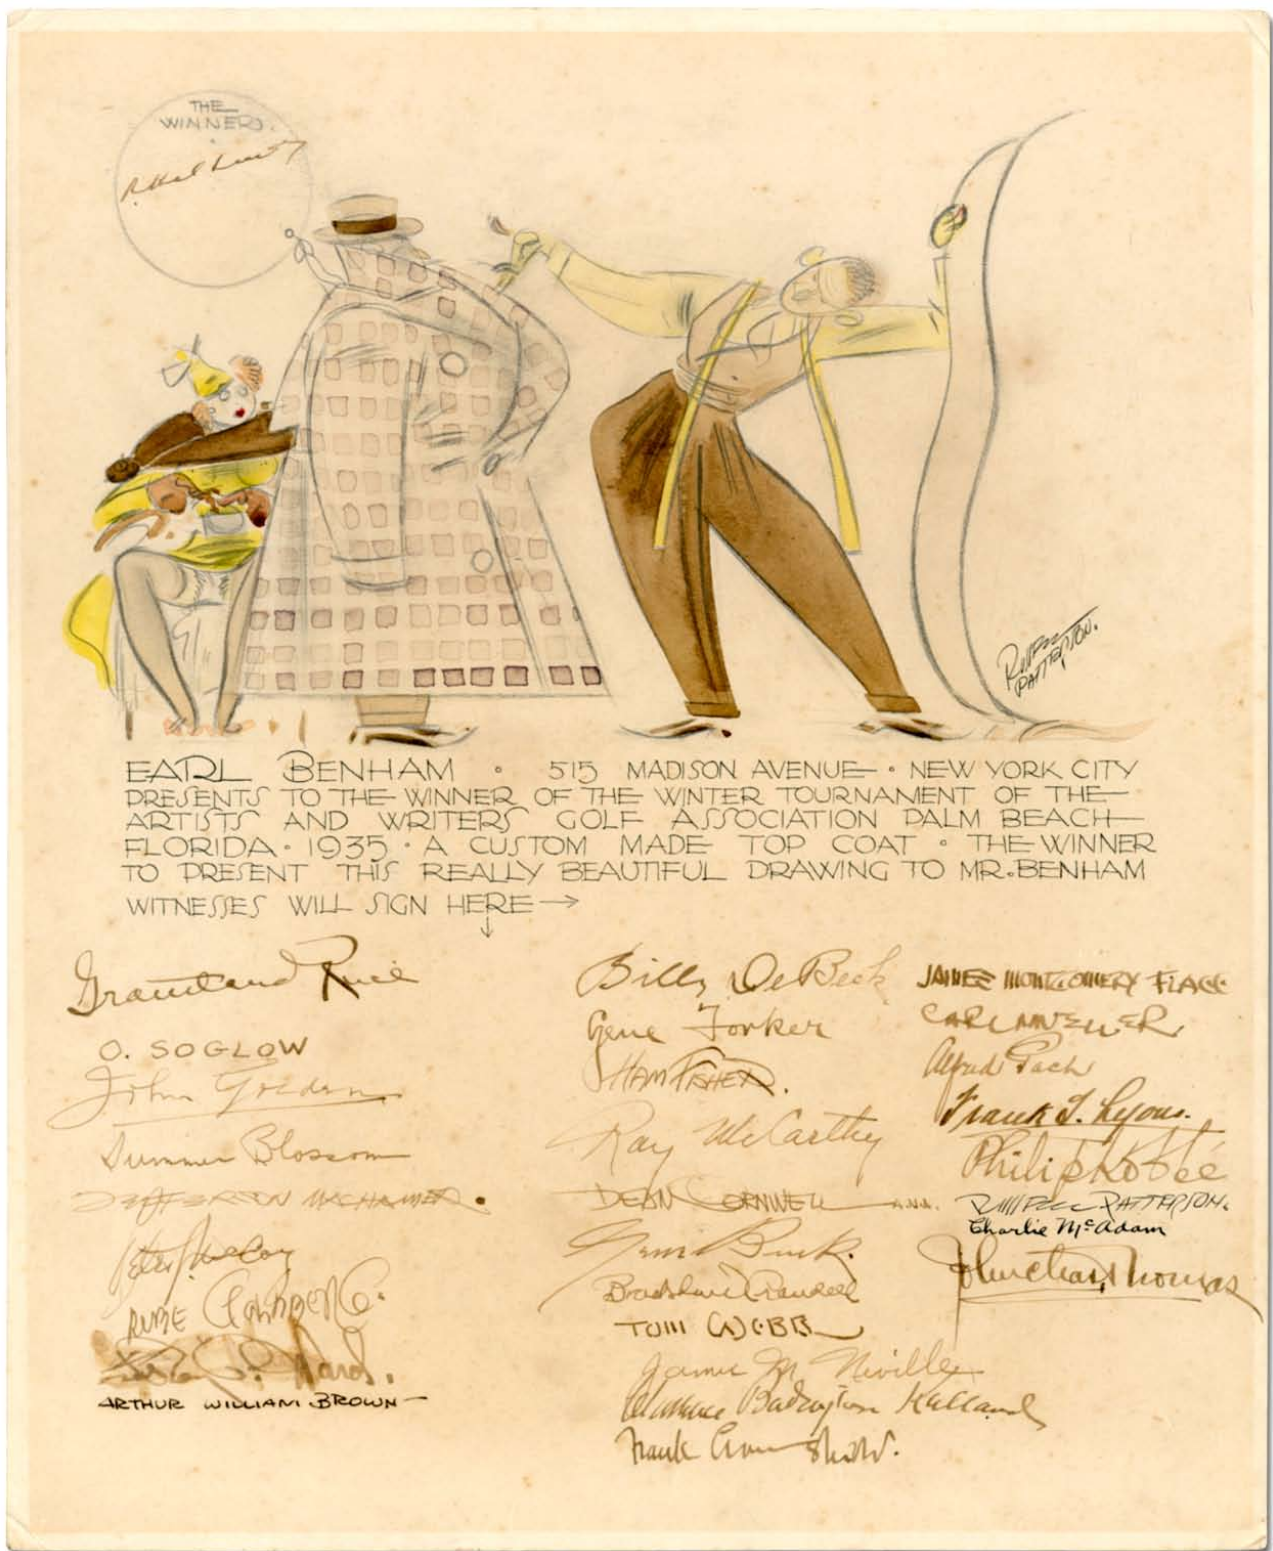 THE
WINNERS.
RUSSELL
PATTERSON.
EARL BENHAM • 515 MADISON AVENUE • NEW YORK CITY
PRESENTS TO THE WINNER OF THE WINTER TOURNAMENT OF THE
ARTISTS AND WRITERS GOLF ASSOCIATION PALM BEACH
FLORIDA • 1935 • A CUSTOM MADE TOP COAT • THE WINNER
TO PRESENT THIS REALLY BEAUTIFUL DRAWING TO MR. BENHAM
WITNESSES WILL SIGN HERE →
↓
Grantland Rice
O. SOGLOW
John Golden
Sumner Blossom
JEFFERSON MACHAMER.
RUBE GOLDBERG.
ARTHUR WILLIAM BROWN
Billy DeBeck
Gene
HAM FISHER.
Ray McCarthy
DEAN CORNWELL
Gene Buck.
Bradshaw Crandell
TOM WEBB
James M Neville
Clarence Budington Kelland
Frank Crowninshield.
JAMES MONTGOMERY FLAGG
CARL MUELLER
Alfred
Frank J. Lyons.
Philip Kobbé
RUSSELL PATTERSON.
Charlie McAdam
John Chas. Thomas